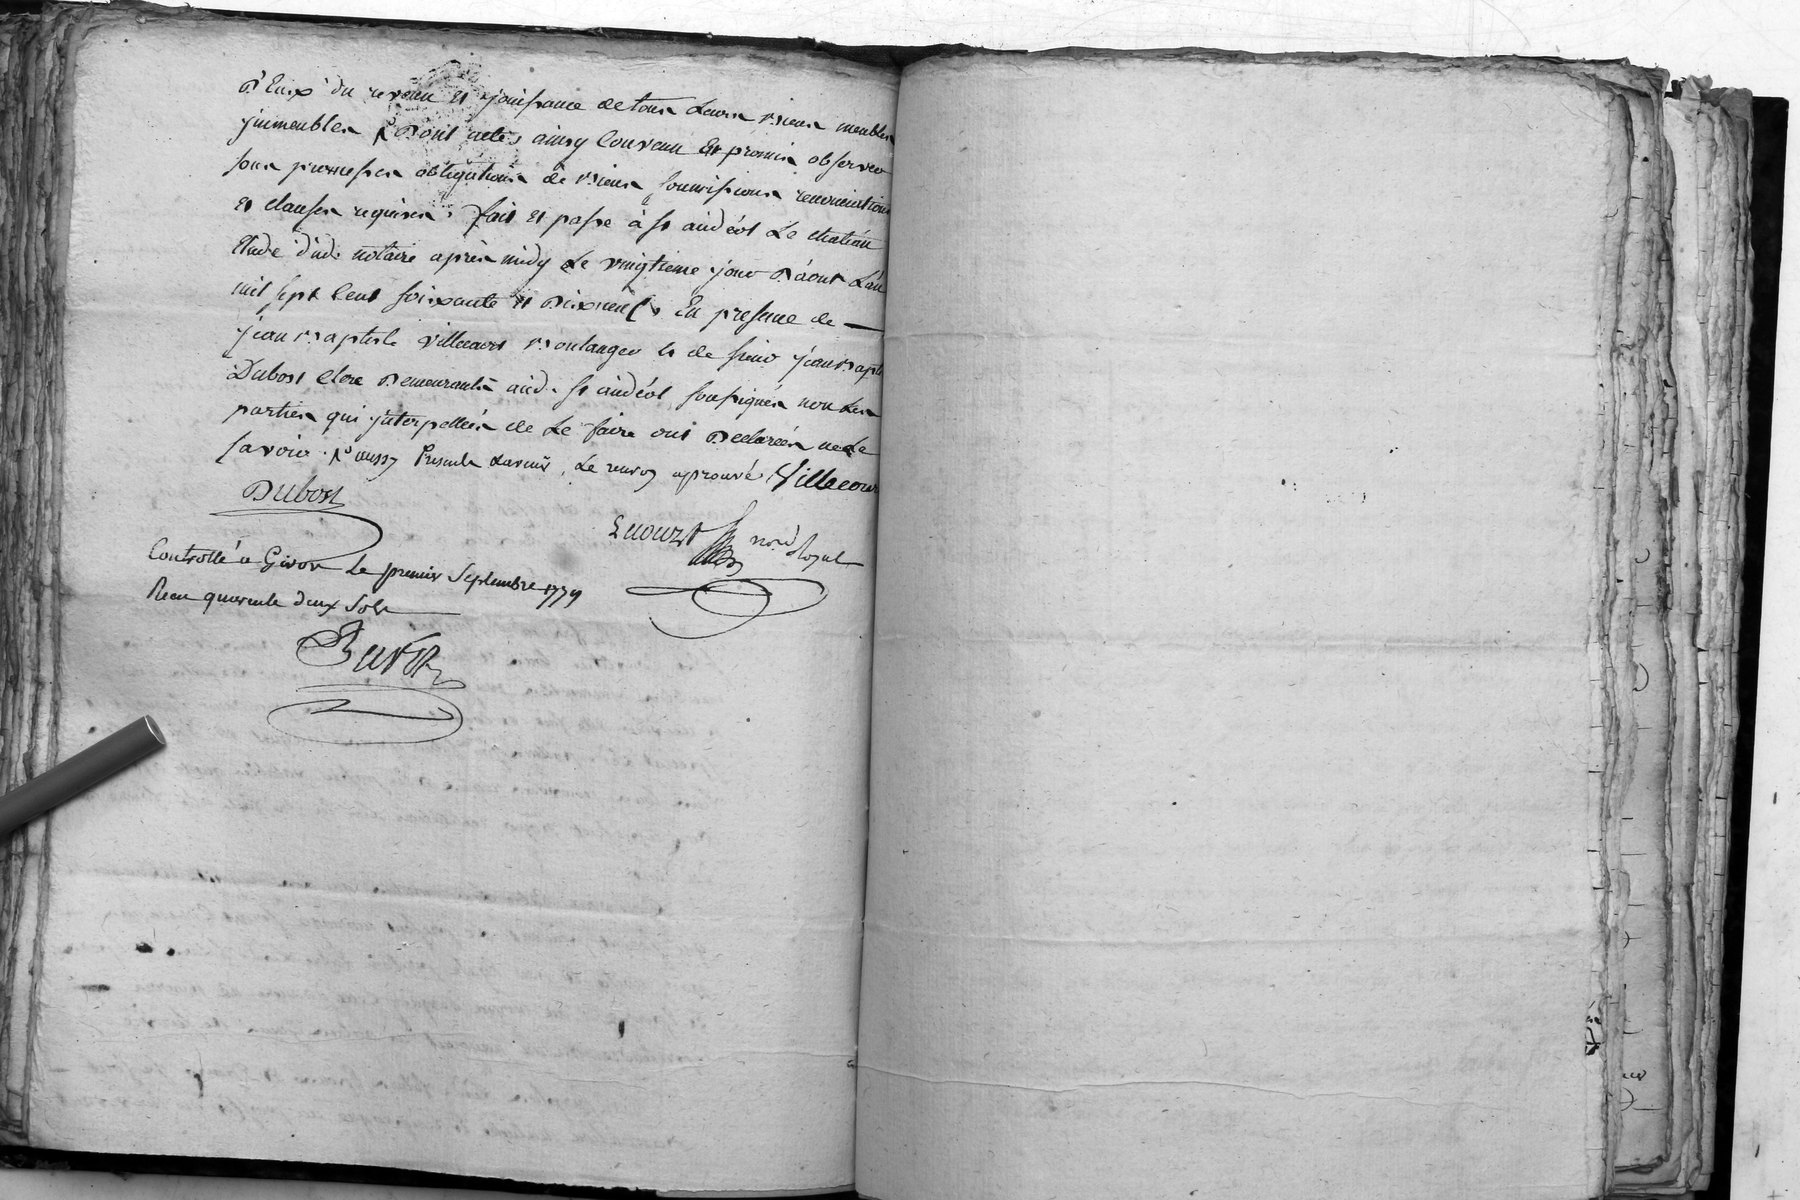 d'Eux du revenu et jouissance de tous Leurs biens meubles
jmmeubles dont acte, ainsy Convenu Et promis observer
sous promesses obligations de biens soumissions renonciations
et clauses requises. fait et passé à st andéol Le chateau
Etude dud. notaire après midy Le vingtieme jour D'aout L'an
mil sept Cent soixante et Dixneuf, En presence de
jean Baptiste Villecourt Boulanger et de sieur jean Bapte
Dubost Clerc Demeurants aud. st andéol soussignés non Les
parties qui jnterpellées de Le faire ont Declarées ne Le
savoir. Le renvoy aprouvé Villecour
Dubost
nore Royal
Controllé a Givor Le premier Septembre 1779
Reçu quarente deux Sols